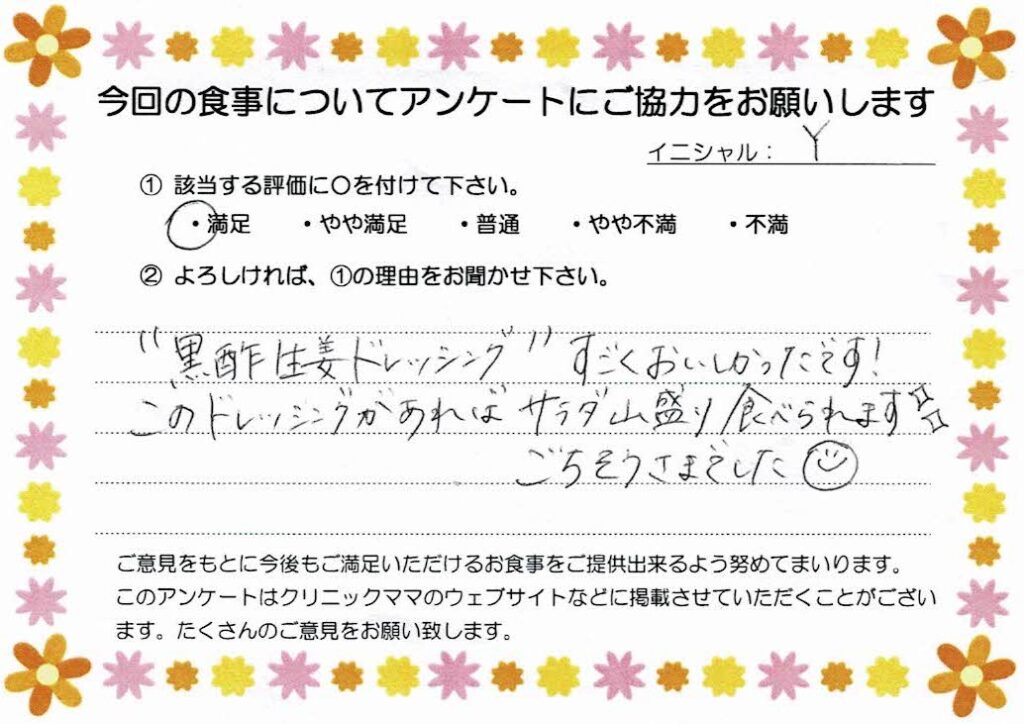 今回の食事についてアンケートにご協力をお願いします
イニシャル： Y
① 該当する評価に〇を付けて下さい。
・満足 ・やや満足 ・普通 ・やや不満 ・不満
② よろしければ、①の理由をお聞かせ下さい。
"黒酢生姜ドレッシング" すごくおいしかったです!
このドレッシングがあれば サラダ山盛り食べられます
ごちそうさまでした
ご意見をもとに今後もご満足いただけるお食事をご提供出来るよう努めてまいります。
このアンケートはクリニックママのウェブサイトなどに掲載させていただくことがござい
ます。たくさんのご意見をお願い致します。